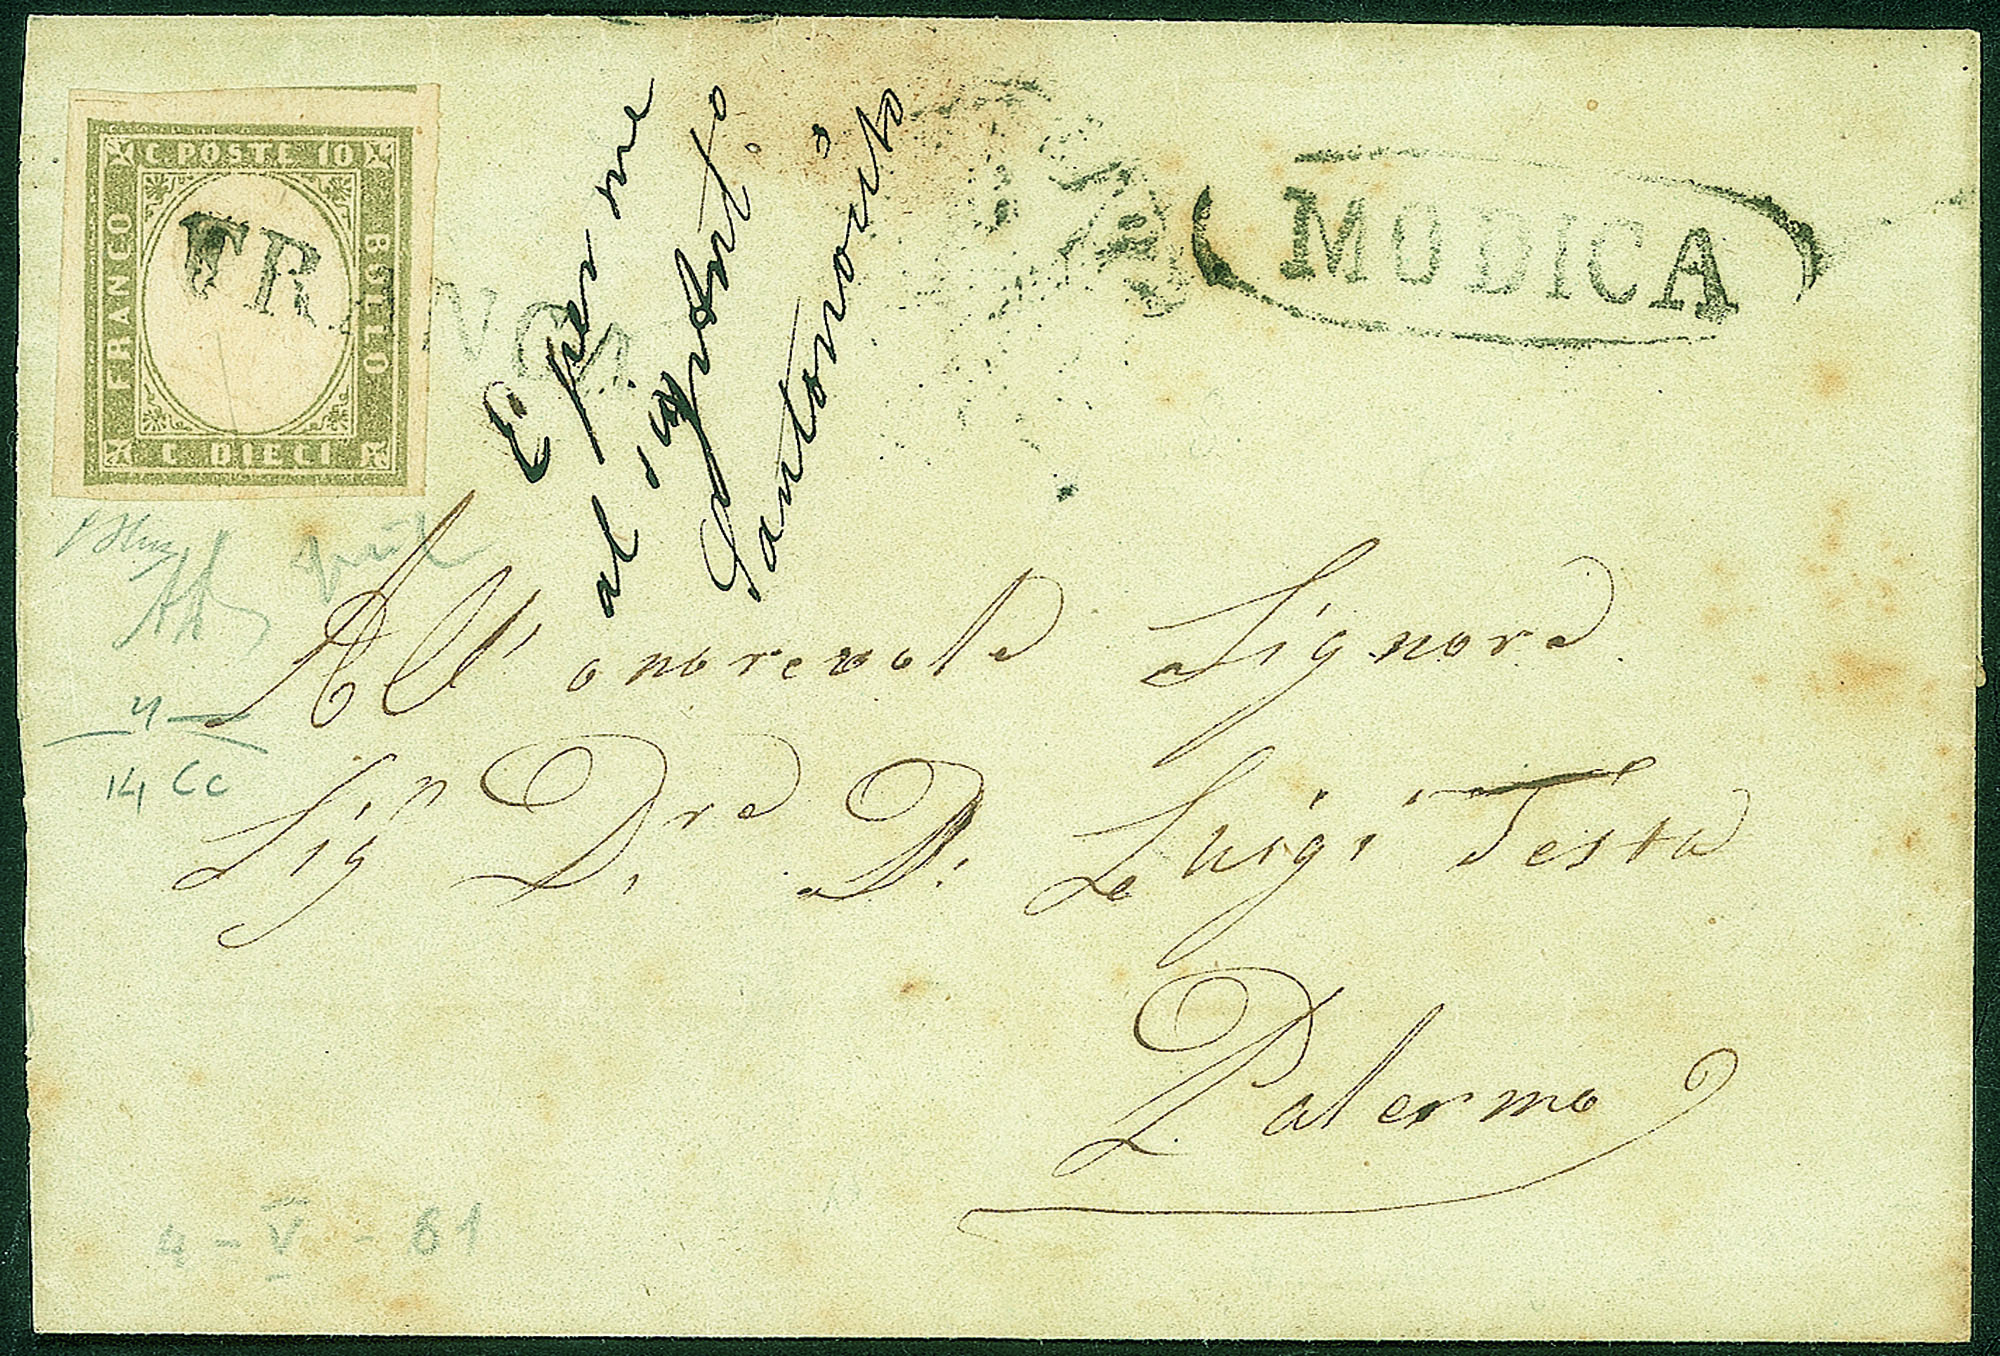 C. POSTE 10
FRANCO
BOLLO
C. DIECI
TRA
MODICA
E per me
al sig. Ant.o
Santonocito
All' onorevole Signore
Sig.r D.re D. Luigi Testa
Palermo
4
14 Cc
4 - V - 61